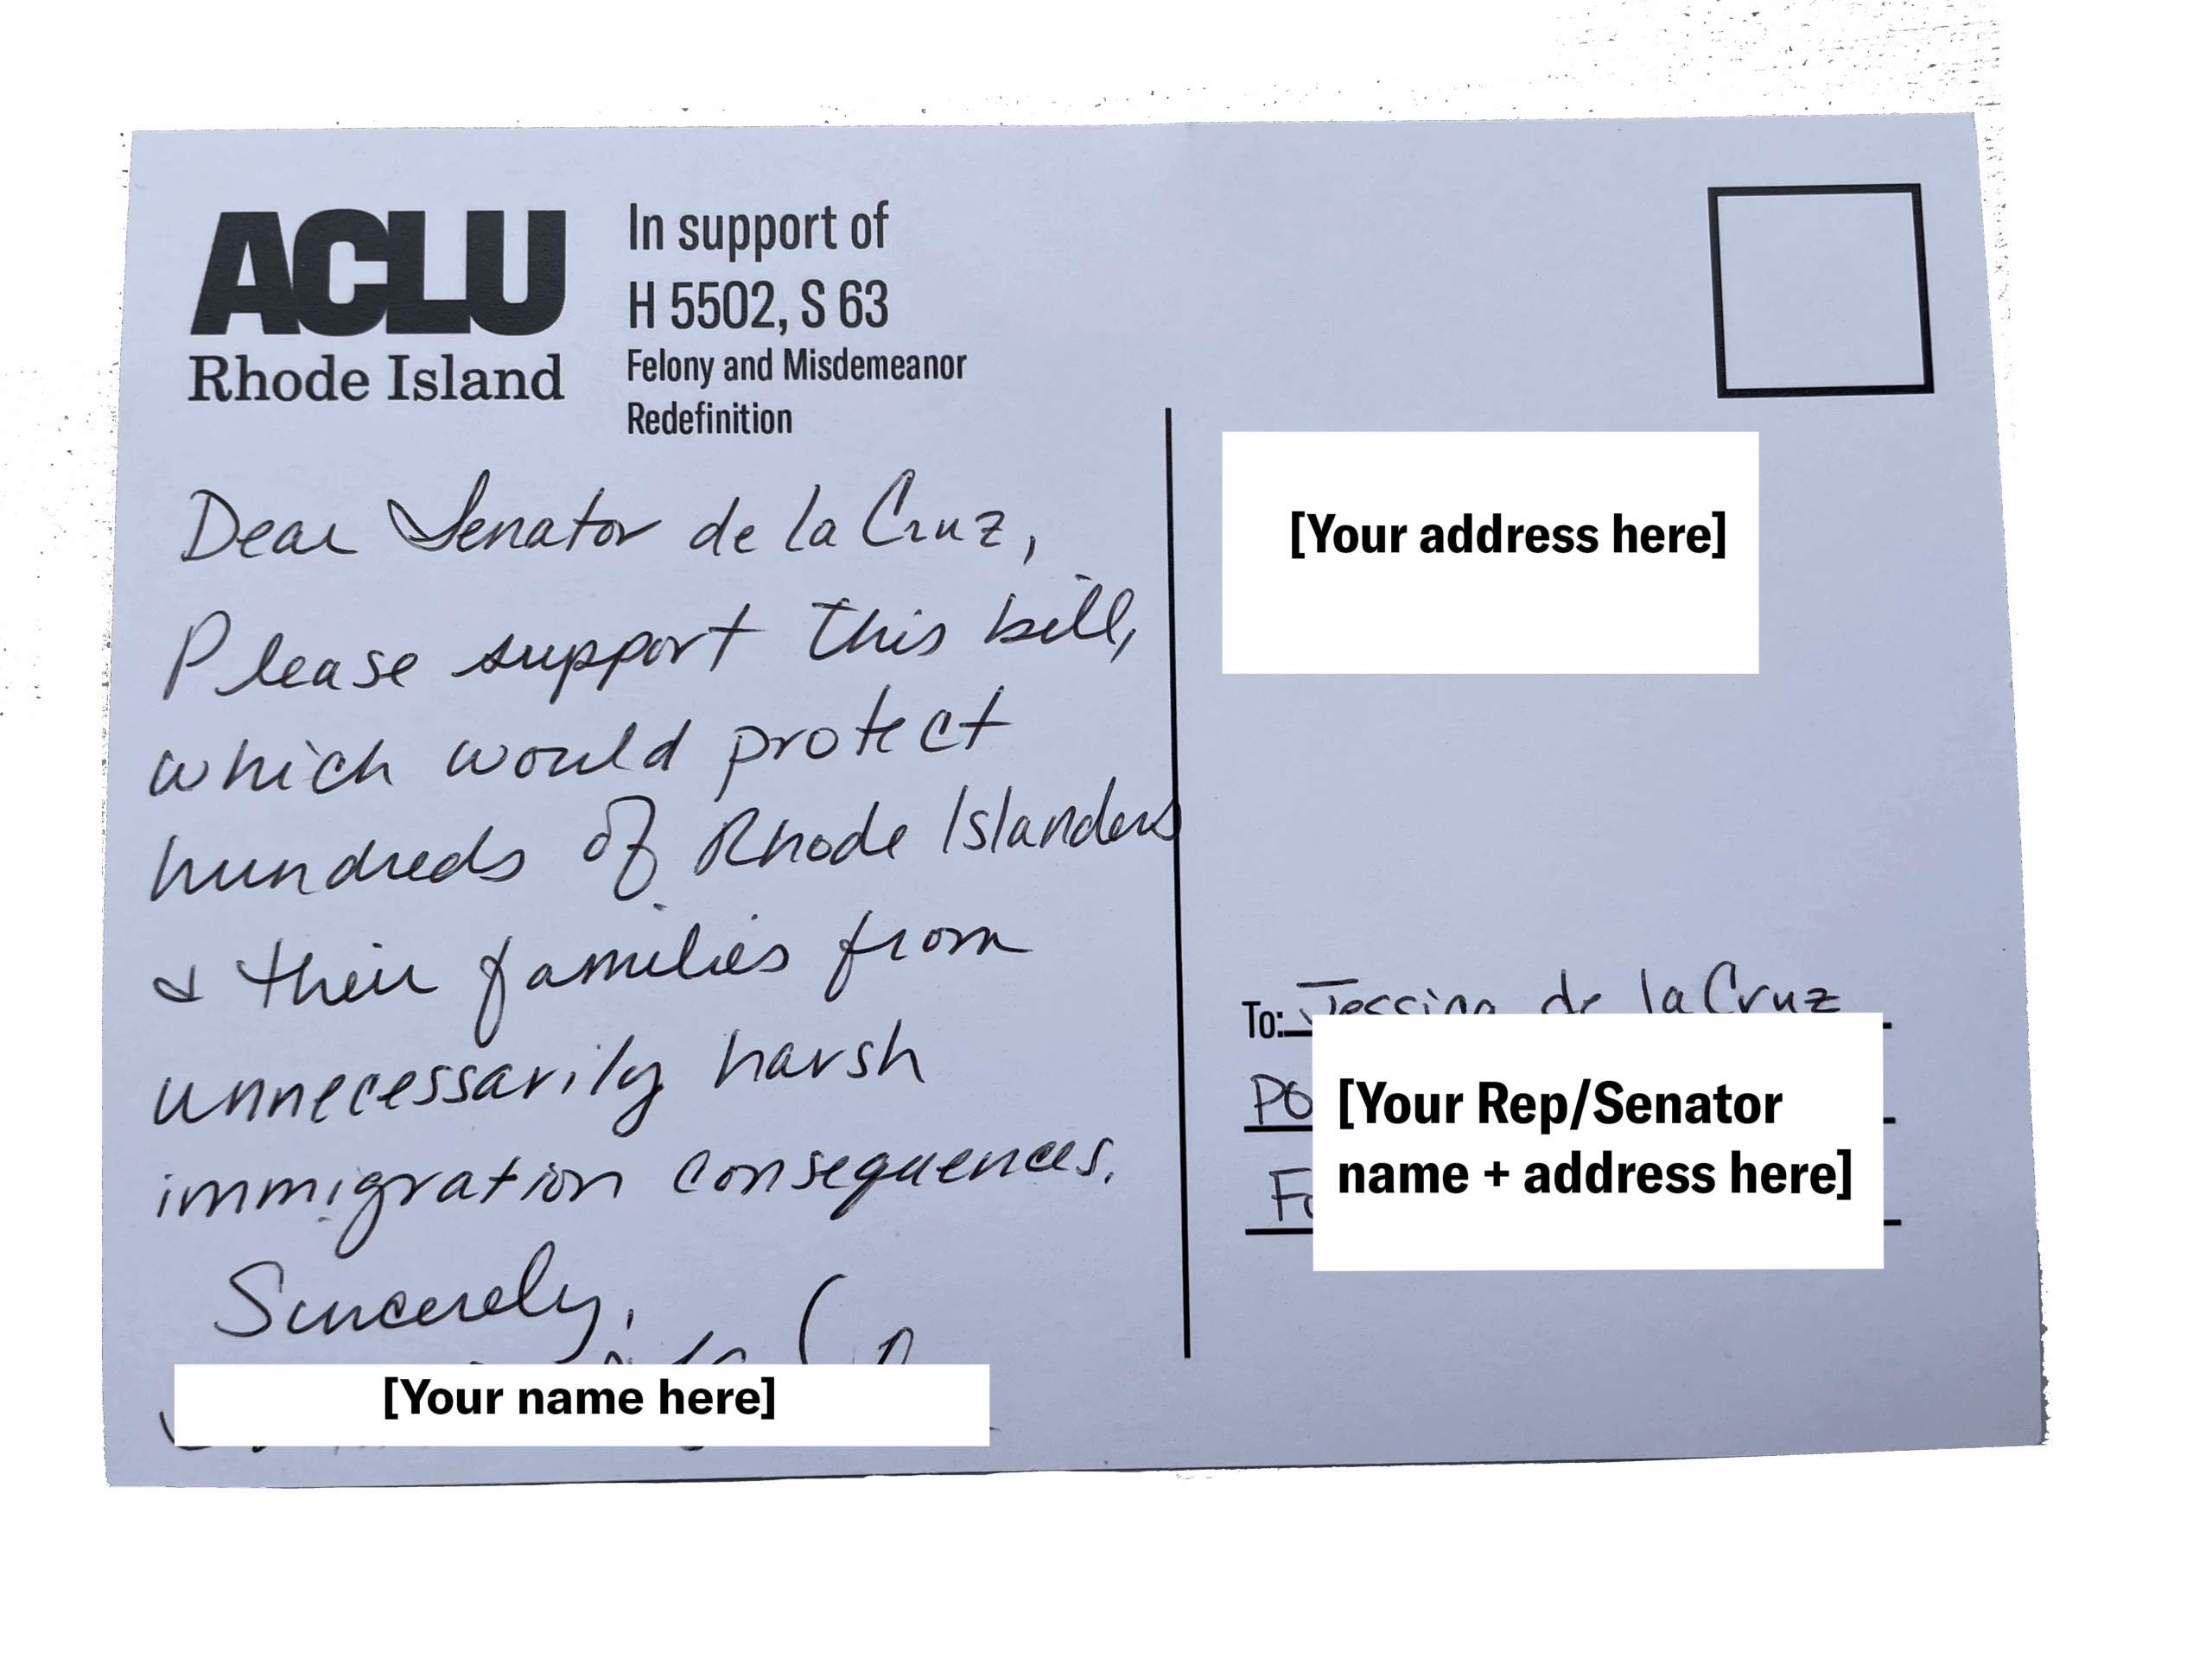 ACLU
Rhode Island
In support of
H 5502, S 63
Felony and Misdemeanor
Redefinition
Dear Senator de la Cruz,
Please support this bill,
which would protect
hundreds of Rhode Islanders
& their families from
unnecessarily harsh
immigration consequences.
Sincerely,
[Your name here]
[Your address here]
To: Jessica de la Cruz
PO
[Your Rep/Senator
name + address here]